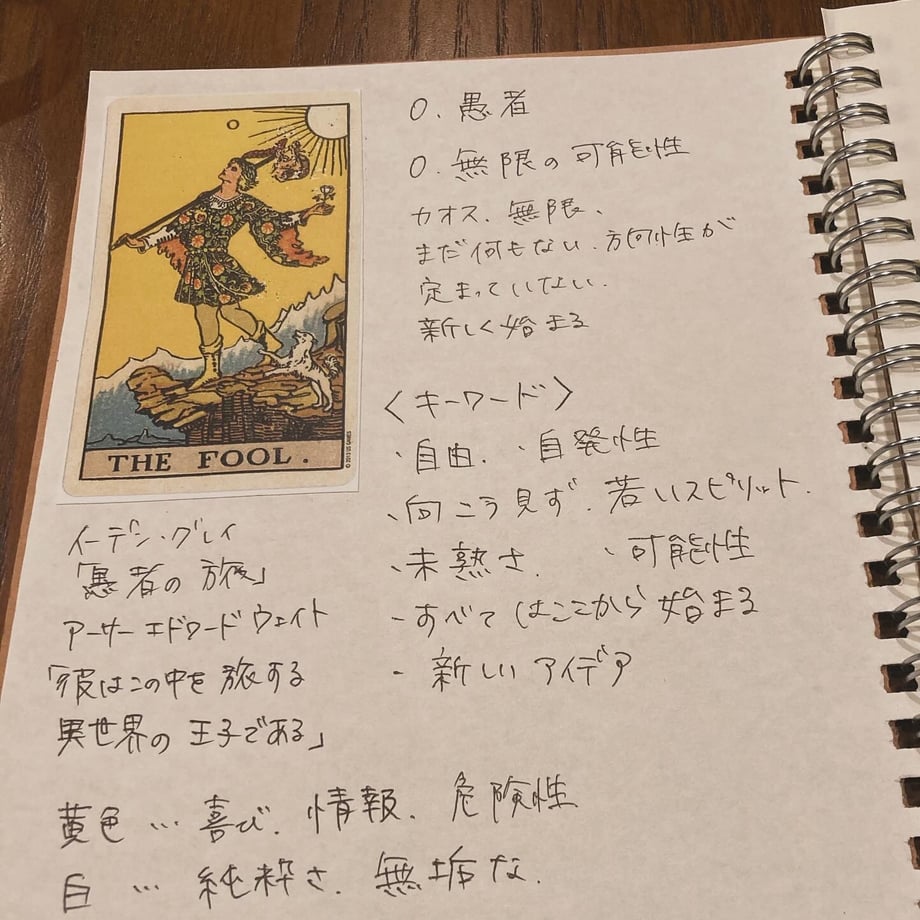 0
THE FOOL.
0. 愚者
0. 無限の可能性
カオス、無限、
まだ何もない、方向性が
定まっていない。
新しく始まる
〈キーワード〉
・自由、・自発性
・向こう見ず、若いスピリット、
・未熟さ、・可能性
・すべてはここから始まる
・新しいアイデア
イーデン・グレイ
「愚者の旅」
アーサーエドワードウェイト
「彼はこの中を旅する
異世界の王子である」
黄色…喜び、情報、危険性
白…純粋さ、無垢な、